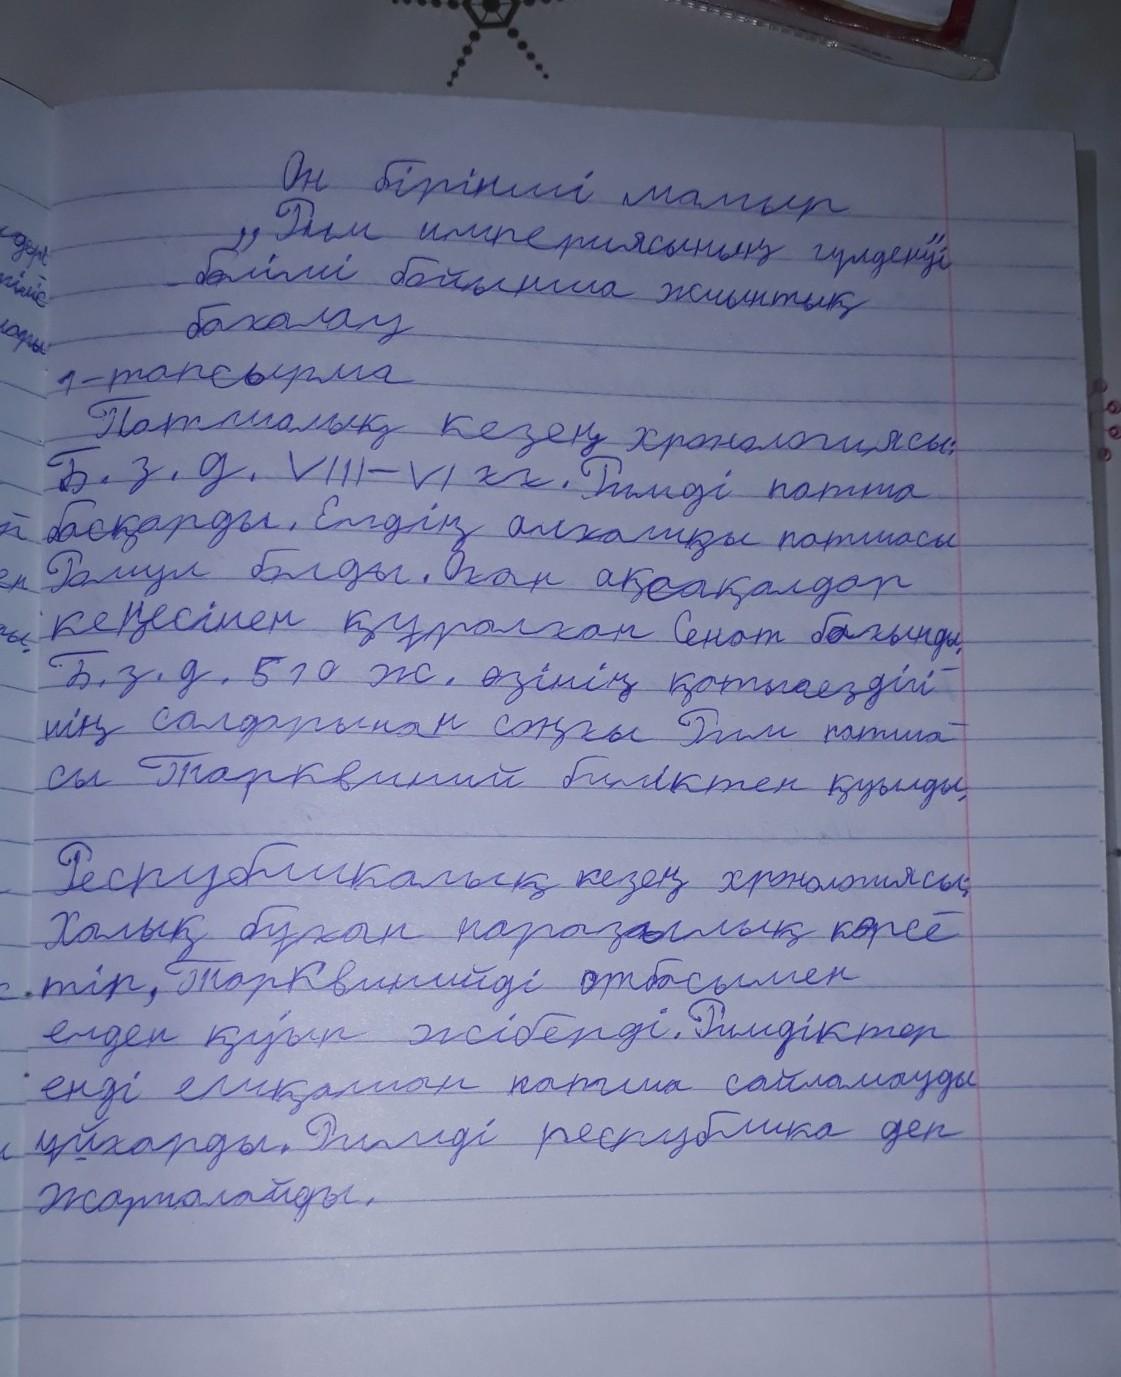 Он бірінші мамыр
„Рим империясының гүлденуі"
бөлімі бойынша жиынтық
бағалау
1-тапсырма
Патшалық кезең хронологиясы:
Б.з.д. VIII–VI ғғ. Римді патша
басқарды. Елдің алғашқы патшасы
Ромул болды. Оған ақсақалдар
кеңесінен құралған Сенат бағынды.
Б.з.д. 510 ж. өзінің қатыгездігі-
нің салдарынан соңғы Рим патша-
сы Тарквиний биліктен қуылды.
Республикалық кезең хронологиясы:
Халық бұған наразылық көрсе-
тіп, Тарквинийді отбасымен
елден қуып жіберді. Римдіктер
енді ешқашан патша сайламауды
ұйғарды. Римді республика деп
жариалайды.